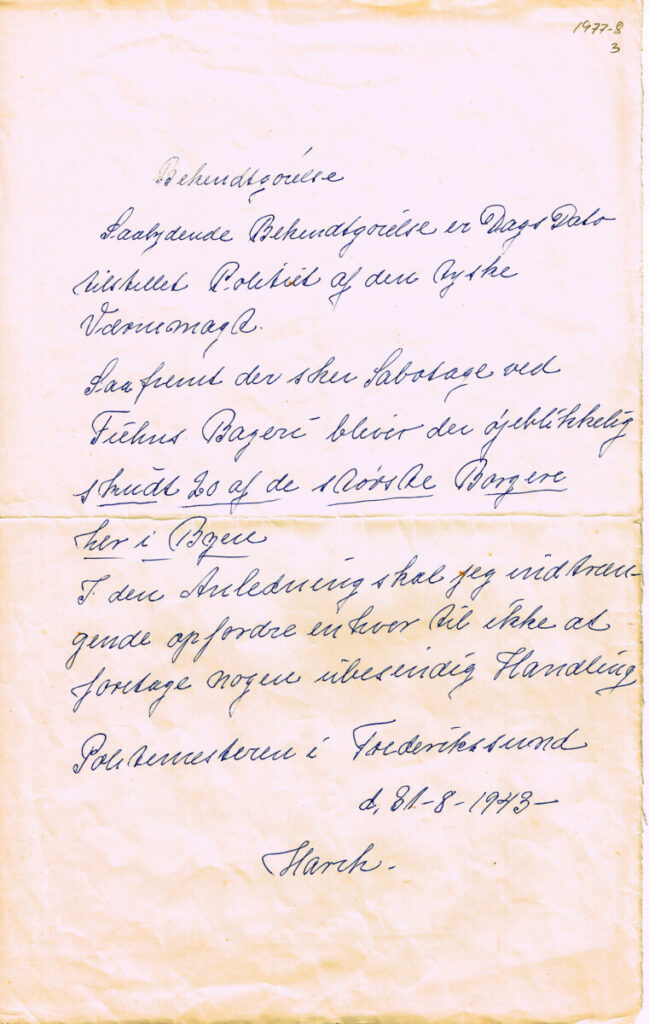 1977-8
3
Bekendtgørelse
Saalydende Bekendtgørelse er Dags Dato
tilstillet Politiet af den tyske
Værnemagt.
Saafremt der sker Sabotage ved
Bageri bliver der øjeblikkelig
skudt 20 af de største Borgere
her i Byen
I den Anledning skal jeg indtræn-
gende opfordre enhver til ikke at
foretage nogen ubesindig Handling
Politimesteren i Frederikssund
d. 31-8-1943-